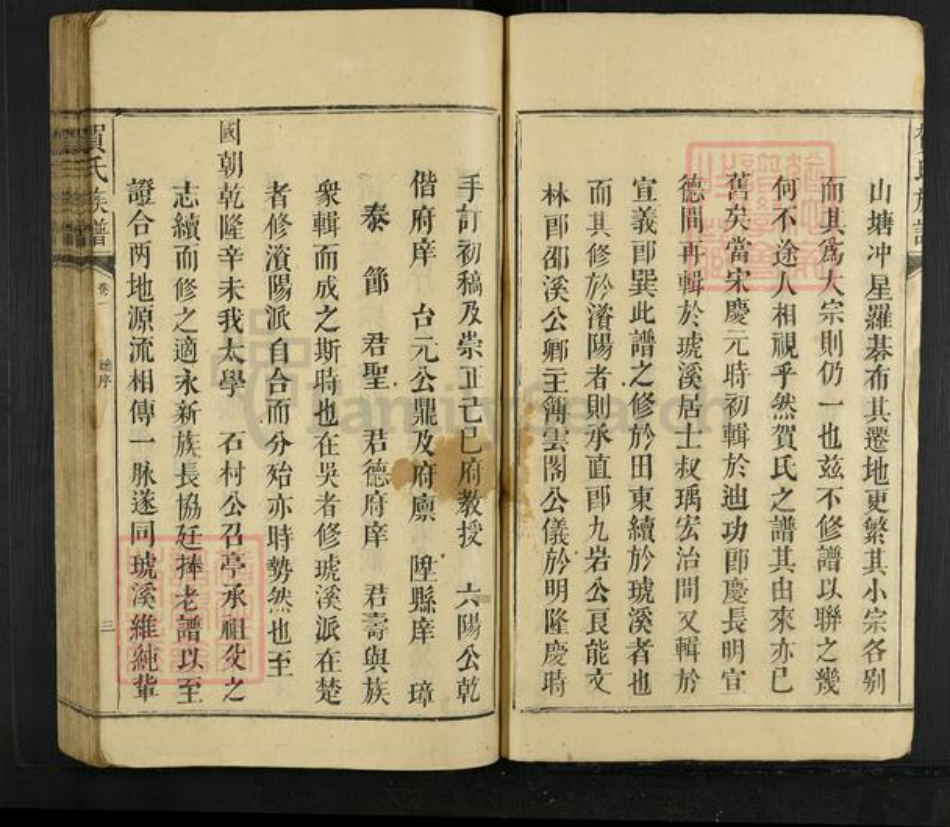 山塘冲星羅碁布其遷地更繁其小宗各别
而其爲大宗則仍一也玆不修譜以聯之幾
何不途人相視乎然賀氏之譜其由來亦已
舊矣當宋慶元時初輯於廸功郎慶長明宣
德間再輯於琥溪居士叔瑀宏治間又輯於
宣義郎巽此譜之修於田東續於琥溪者也
而其修於濱陽者則承直郎九岩公良能文
林郎邵溪公卿主簿雲閣公儀於明隆慶時
手訂初稿及崇正己巳府教授 六陽公乾
偕府庠 台元公鼎及府廩 陞縣庠 璋
泰 節 君聖 君德府庠 君壽與族
衆輯而成之斯時也在吳者修琥溪派在楚
者修濱陽派自合而分殆亦時勢然也至
國朝乾隆辛未我太學 石村公召亭承祖父之
志續而修之適永新族長協廷捧老譜以至
證合两地源流相傳一脉遂同琥溪維純輩
賀氏族譜
卷一
三
FamilySearch